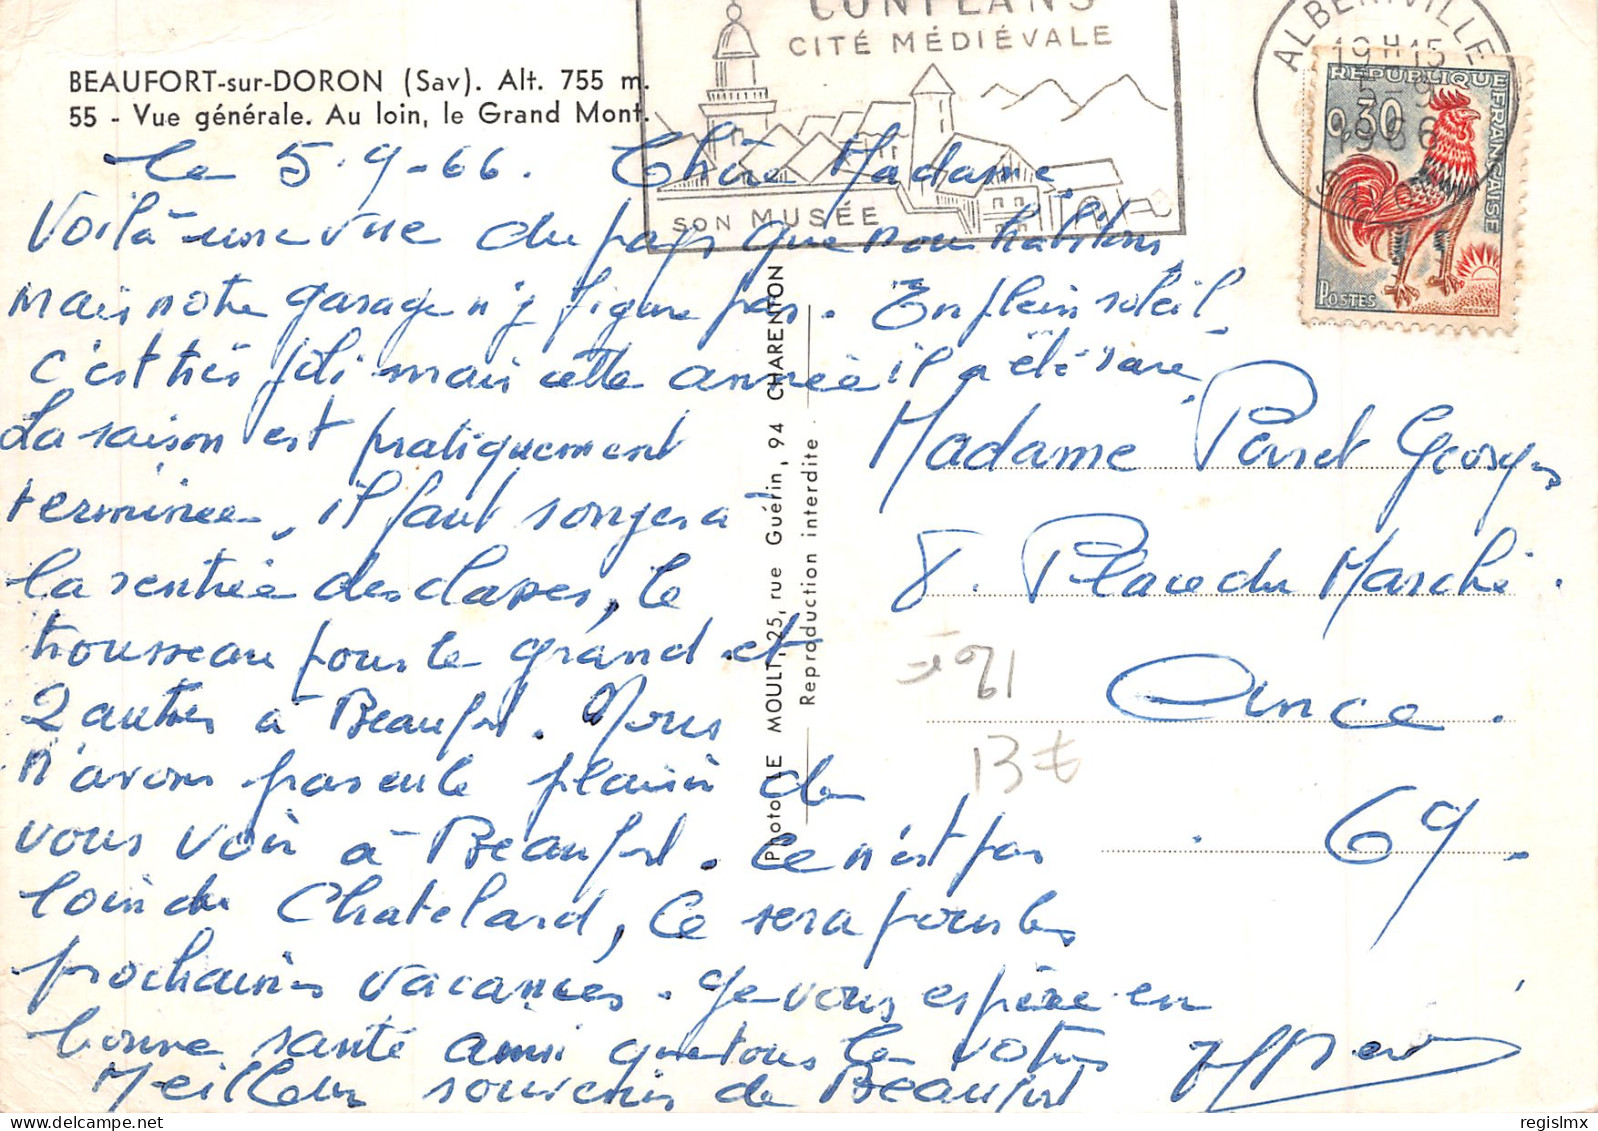 BEAUFORT-sur-DORON (Sav). Alt. 755 m.
55 - Vue générale. Au loin, le Grand Mont.
CONFLANS
CITÉ MÉDIÉVALE
SON MUSÉE
ALBERTVILLE
19H15
5-9
1966
RÉPUBLIQUE FRANÇAISE
0,30
POSTES
Le 5.9-66. Chère Madame,
Voilà une vue du pays que nous habitons,
mais notre garage n'y figure pas. En plein soleil,
c'est très joli mais cette année il a été rare,
La saison est pratiquement
terminée, il faut songer à
la rentrée des classes, le
trousseau pour le grand et
2 autres à Beaufort. Nous
n'avons pas eu le plaisir de
vous voir à Beaufort. Ce n'est pas
loin du Chatelard, Ce sera pour les
prochaines vacances. Je vous espère en
bonne santé ainsi que tous les votres
Meilleur souvenir de Beaufort
Photo LE MOULT, 25, rue Guérin, 94 CHARENTON
Reproduction interdite.
Madame Georges
8. Place du Marché.
Anse.
69.
13 €
regislmx